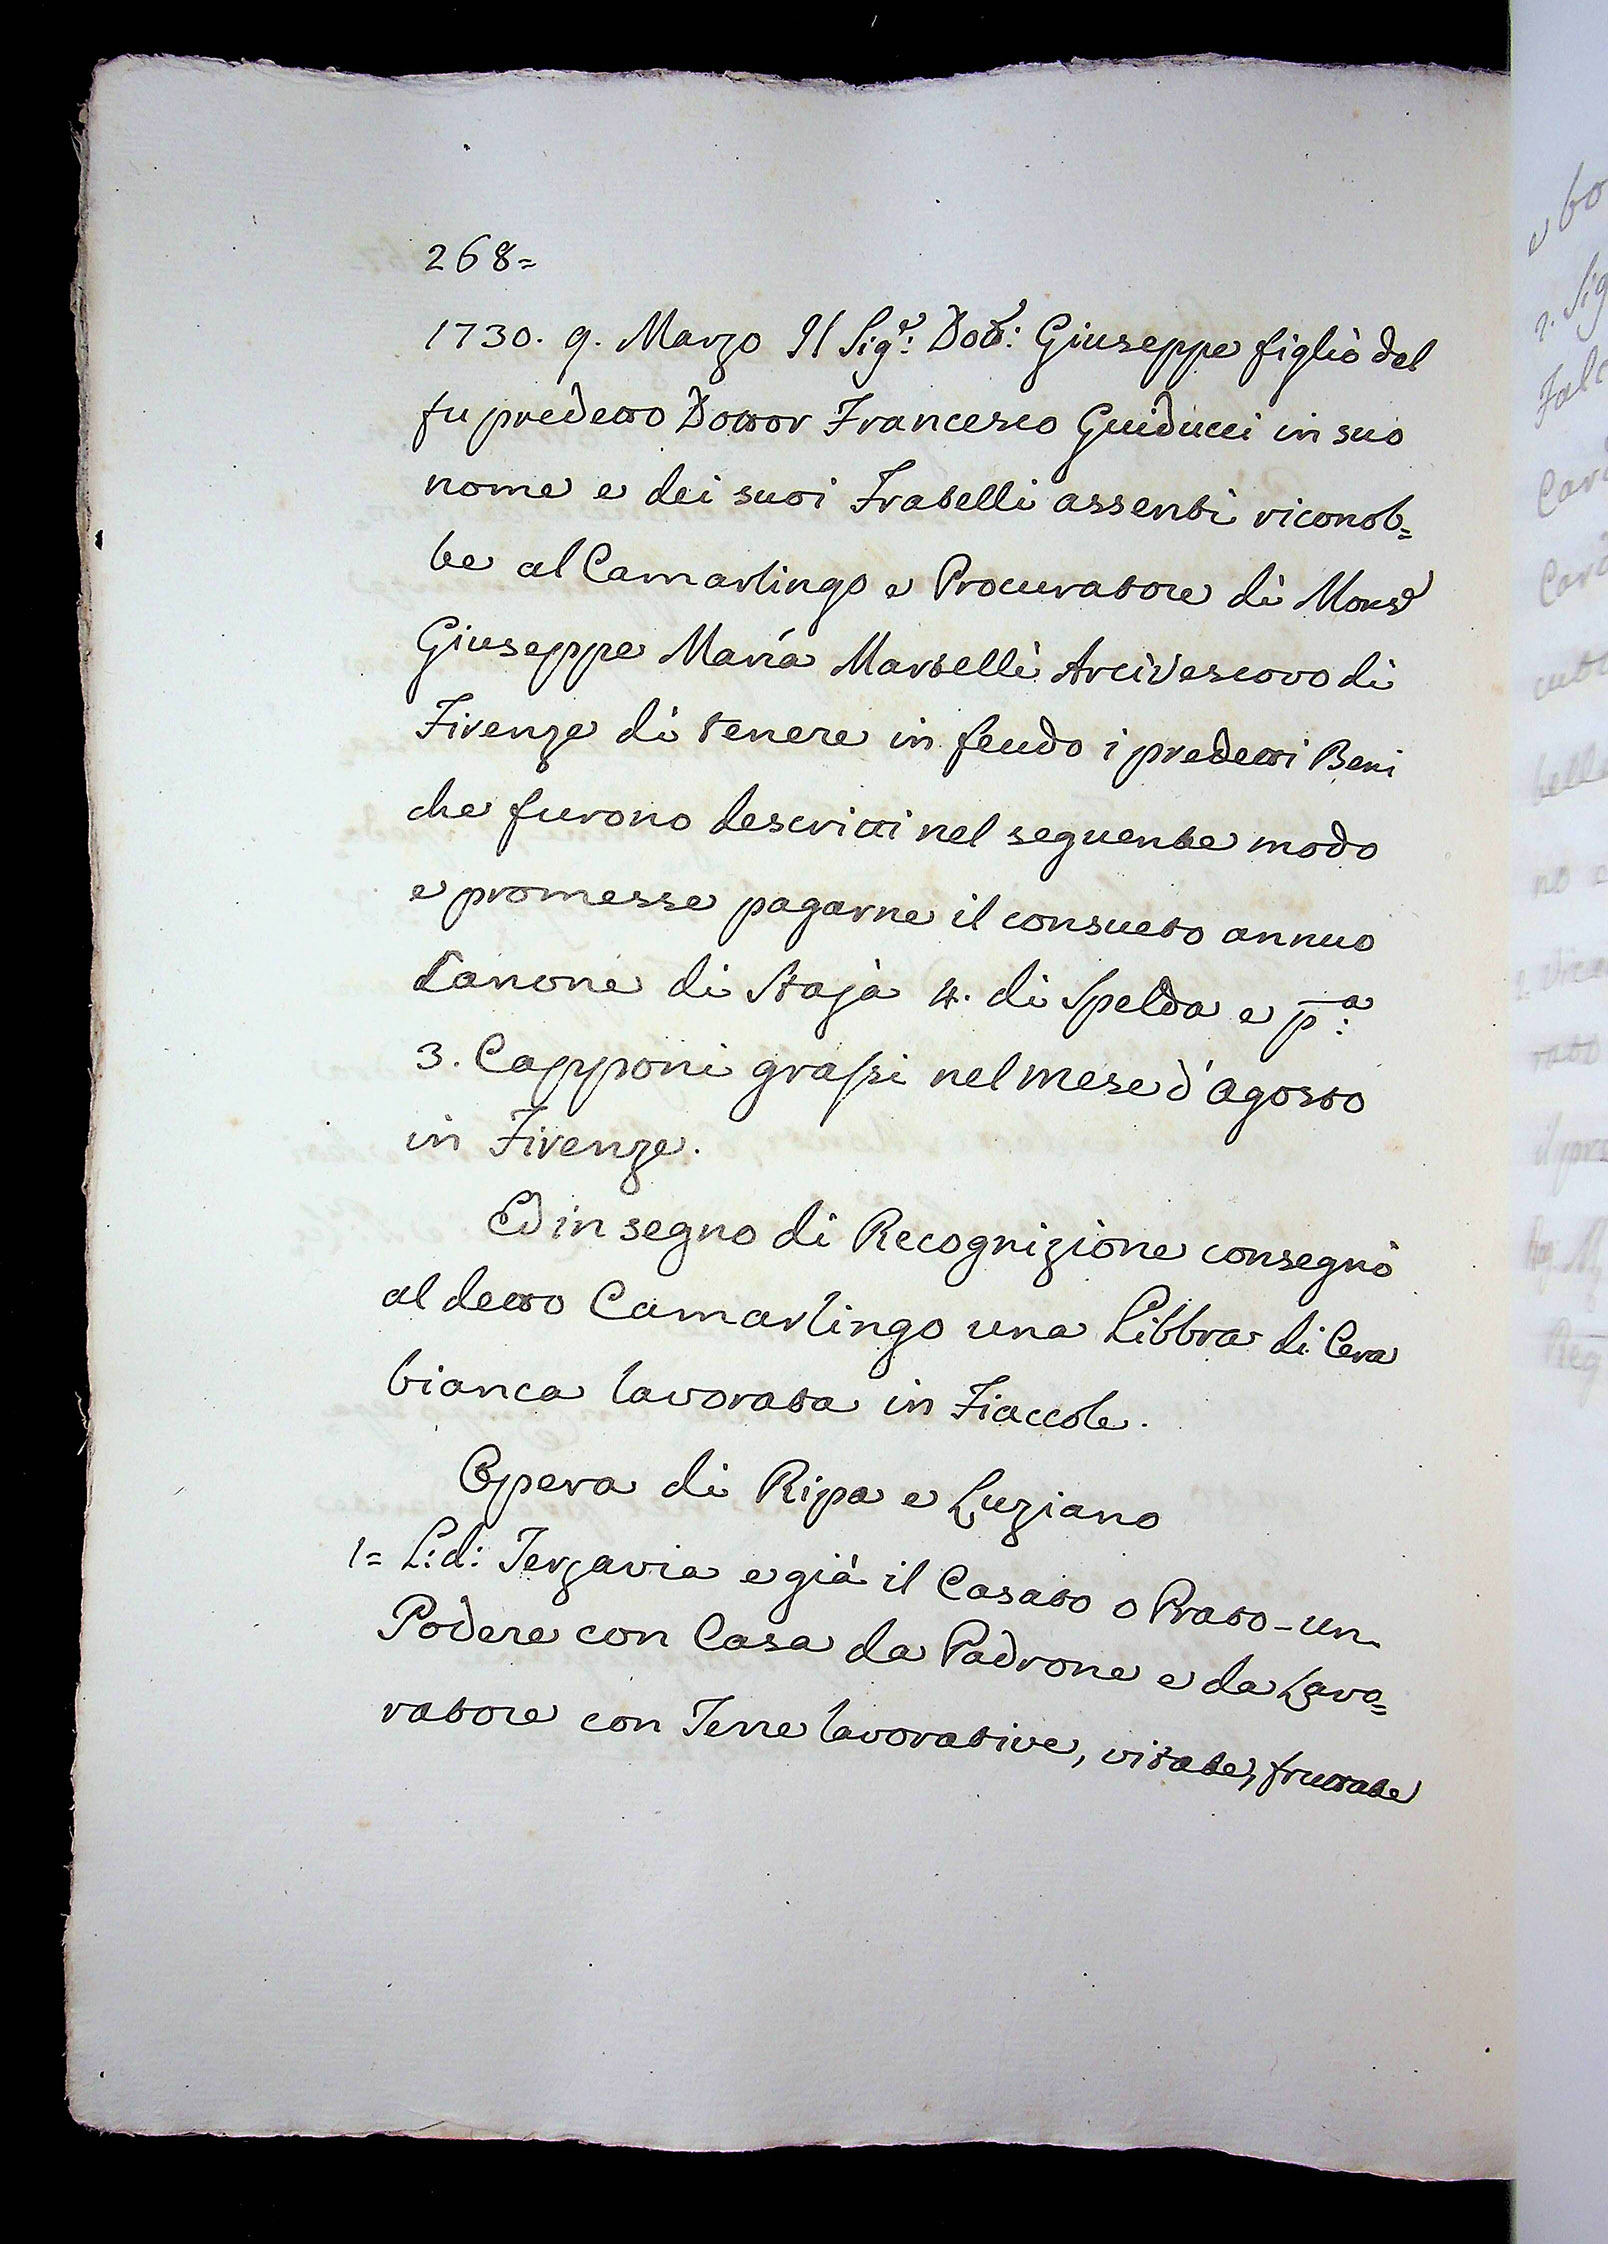 268=
1730. 9. Marzo Il Sig.r: Dott: Giuseppe figlio del
fu predetto Dottor Francesco Guiducci in suo
nome e dei suoi Fratelli assenti riconob=
be al Camarlingo e Procuratore di Monsr
Giuseppe Maria Martelli Arcivescovo di
Firenze di tenere in feudo i predetti Beni
che furono descritti nel seguente modo
e promesse pagarne il consueto annuo
Canone di Staja 4. di Spelda e p:a
3. Capponi grassi nel mese d'agosto
in Firenze.
Ed in segno di Recognizione consegnò
al detto Camarlingo una Libbra di Cera
bianca lavorata in Fiaccole.
Opera di Ripa e Luziano
1= L:d: Terzavia e già il Casato o Prato - un
Podere con Casa da Padrone e da Lavo=
ratore con Terre lavorative, vitate, fruttate